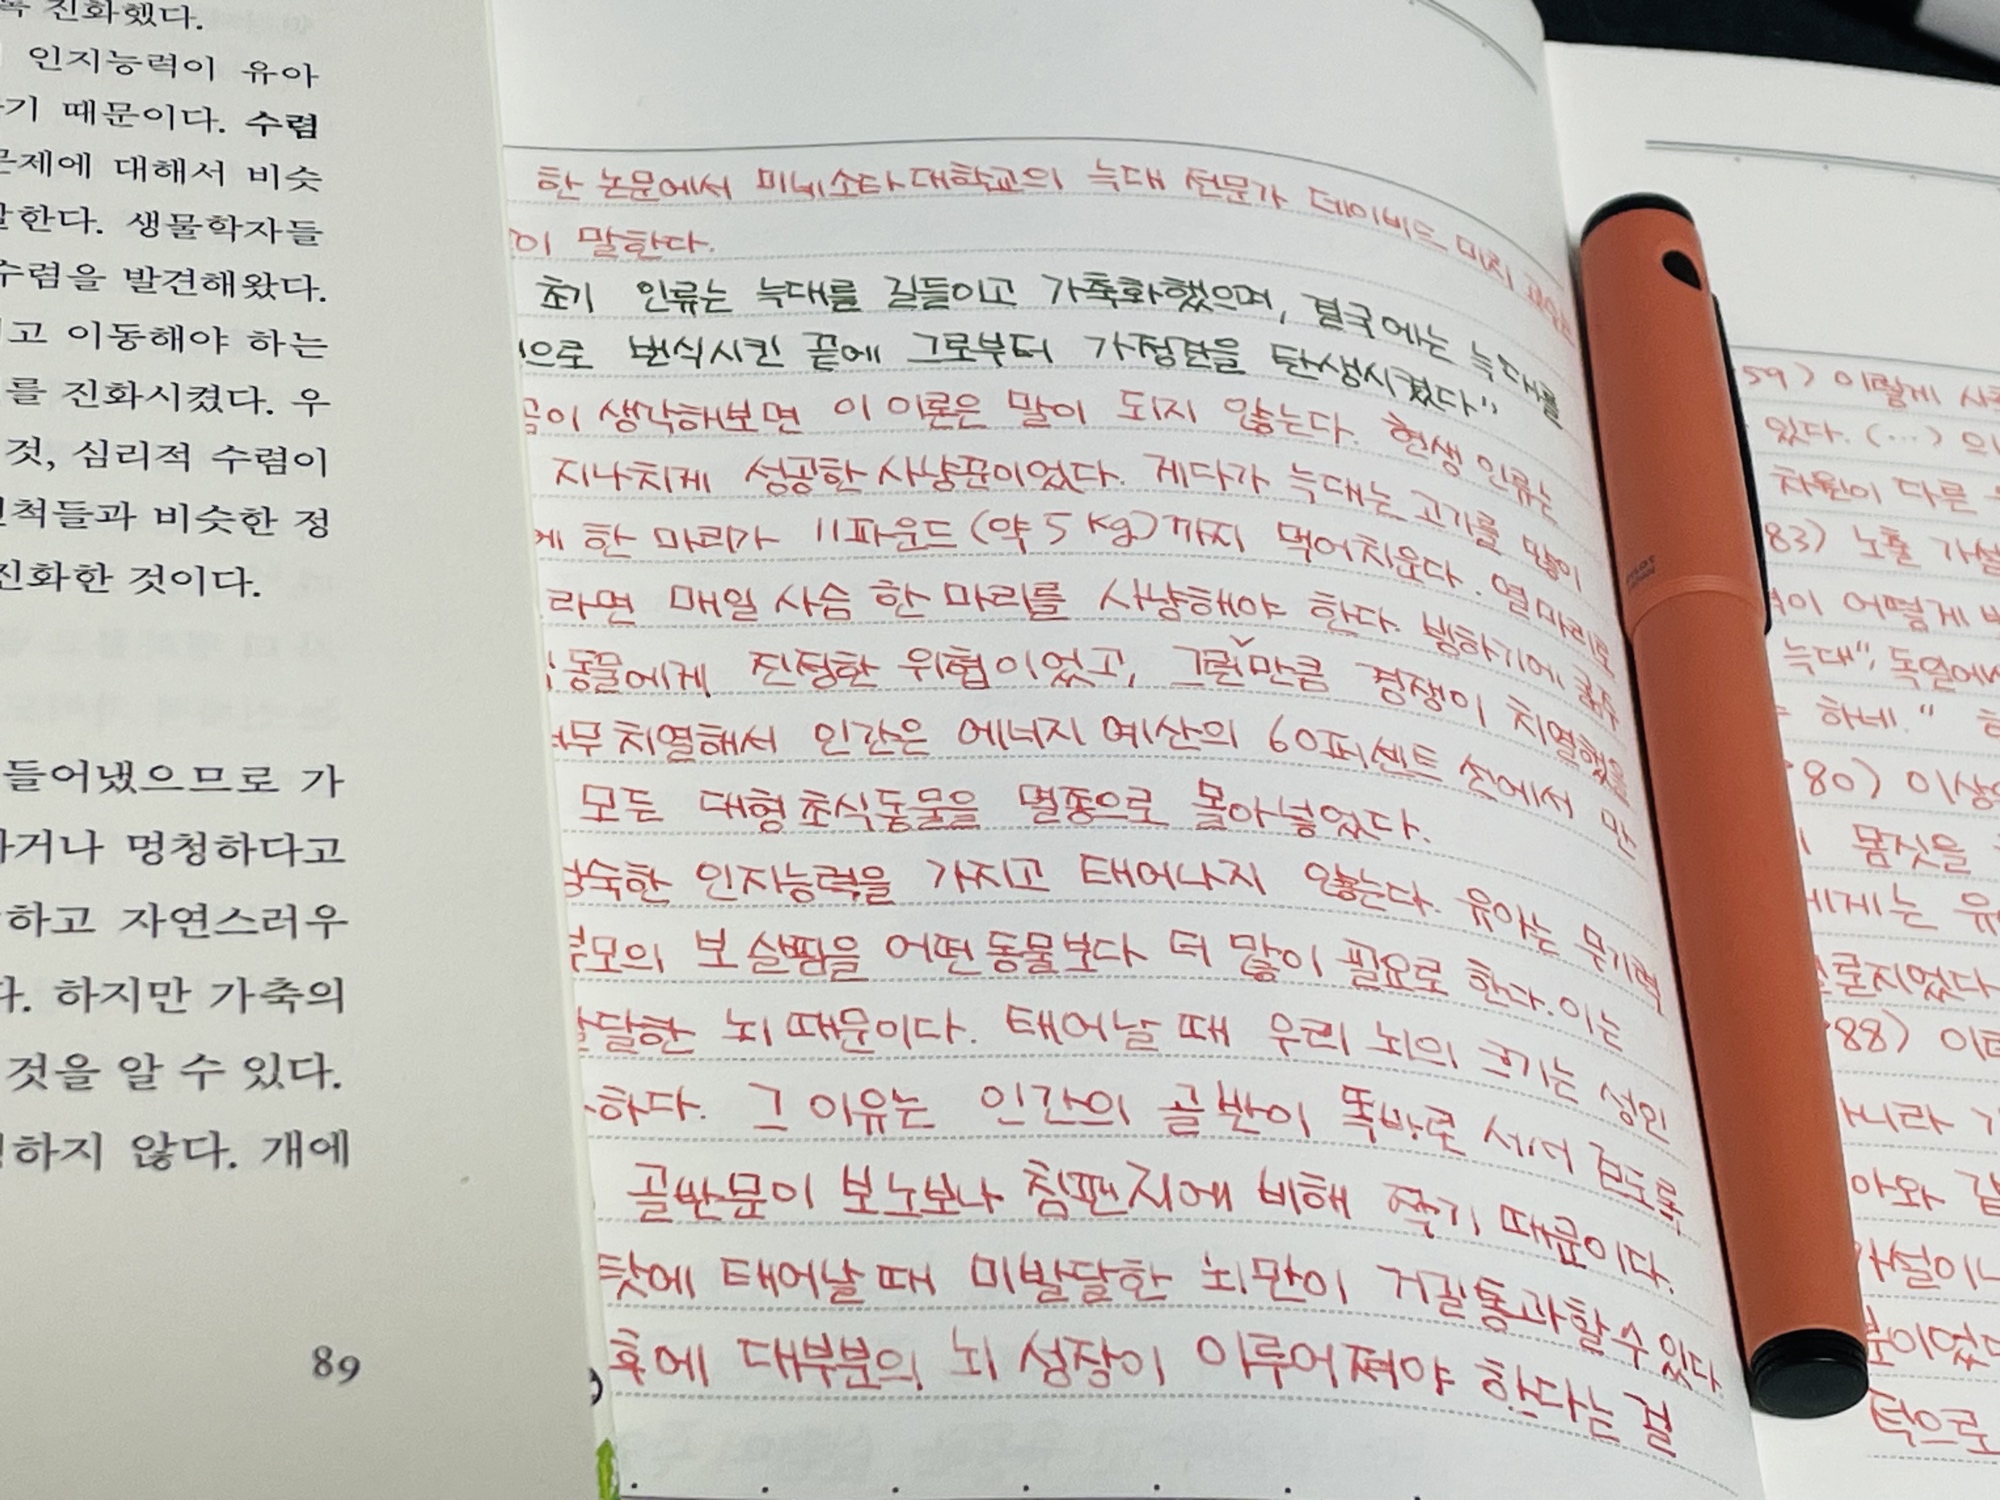 진화했다.
인지능력이 유아
기 때문이다. 수렴
문제에 대해서 비슷
말한다. 생물학자들
수렴을 발견해왔다.
고 이동해야 하는
를 진화시켰다. 우
것, 심리적 수렴이
친척들과 비슷한 정
진화한 것이다.
들어냈으므로 가
거나 멍청하다고
하고 자연스러우
다. 하지만 가축의
것을 알 수 있다.
하지 않다. 개에
89
한 논문에서 미네소타대학교의 늑대 전문가 데이비드 미치 교수는
이 말한다.
초기 인류는 늑대를 길들이고 가축화했으며, 결국에는 늑대를
으로 번식시킨 끝에 그로부터 가정견을 탄생시켰다"
곰이 생각해보면 이 이론은 말이 되지 않는다. 현생 인류는
지나치게 성공한 사냥꾼이었다. 게다가 늑대는 고기를 많이
게 한 마리가 11파운드(약 5kg)까지 먹어치운다. 열 마리로
라면 매일 사슴 한 마리를 사냥해야 한다. 빙하기에
동물에게 진정한 위협이었고, 그만큼 경쟁이 치열했을
너무 치열해서 인간은 에너지 예산의 60퍼센트 선에서 만
모든 대형 초식동물을 멸종으로 몰아넣었다.
성숙한 인지능력을 가지고 태어나지 않는다. 유아는 무기력
부모의 보살핌을 어떤 동물보다 더 많이 필요로 한다. 이는
발달한 뇌 때문이다. 태어날 때 우리 뇌의 크기는 성인
하다. 그 이유는 인간의 골반이 똑바로 서서 걷도록
골반문이 보노보나 침팬지에 비해 좁기 때문이다.
탓에 태어날 때 미발달한 뇌만이 거길 통과할 수 있다.
후에 대부분의 뇌 성장이 이루어져야 한다는 걸
59) 이렇게
있다. (…)
차원이 다른
83) 노출 가설
이 어떻게
늑대", 독일에서
하네."
80) 이상
몸짓을
에게는
른지었다
88)
아니라
아와
가설이
이었다
턱으로